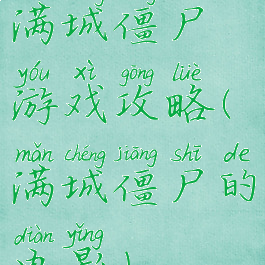 满城僵尸
yóu xì gōng lüè
游戏攻略(
mǎn chéng jiāng shī de
满城僵尸的
diàn yǐng
电影)